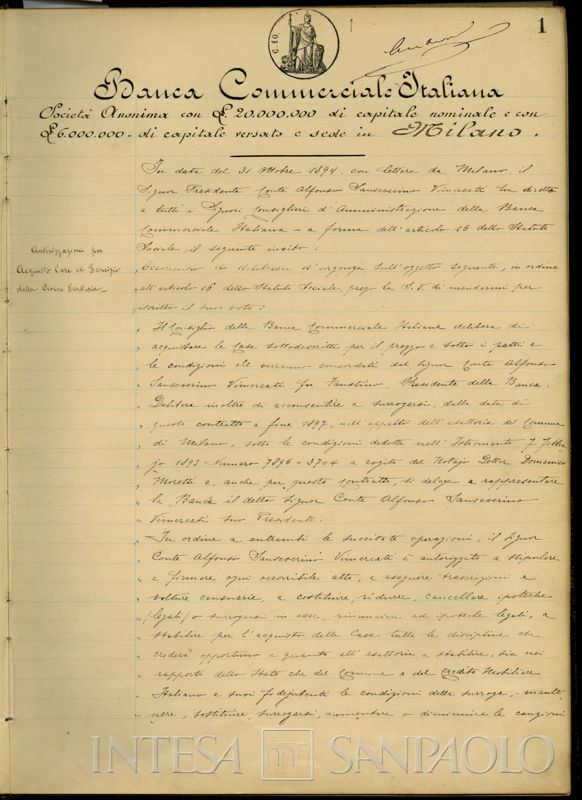 1
C. 10.
Banca Commerciale Italiana
Società Anonima con £. 20.000.000 di capitale nominale e con
£ 6.000.000.- di capitale versato e sede in Milano.
In data del 31 Ottobre 1894 con lettera da Milano il
Signor Presidente Conte Alfonso Sanseverino Vimercati ha diretto
a tutti i Signori Consiglieri d'Amministrazione della Banca
Commerciale Italiana - a forma dell'articolo 16 dello Statuto
Sociale il seguente invito:
Autorizzazione per
Acquisto Case ed Esercizio
della Civica Esattoria
Occorrendo di deliberare d'urgenza sull'oggetto seguente, in ordine
all'articolo 16 dello Statuto Sociale, prego la S.V. di mandarmi per
iscritto il suo voto:
" Il Consiglio della Banca Commerciale Italiana delibera di
" acquistare le Case sottodescritte per il prezzo e sotto i patti e
" le condizioni che verranno concordati dal Signor Conte Alfonso
" Sanseverino Vimercati fu Faustino, Presidente della Banca.
" Delibera inoltre di acconsentire a surrogarsi, dalla data di
" questo contratto a fine 1897, nell'appalto dell'esattoria del Comune
" di Milano, sotto le condizioni dedotte nell'Istromento 7 Febbra
" jo 1893 Numero 7896 = 3704 a rogito del Notajo Dottor Domenico
" Moretti e, anche per questo contratto, si delega a rappresentare
" la Banca il detto Signor Conte Alfonso Sanseverino
" Vimercati suo Presidente.
" In ordine a entrambi le succitate operazioni, il Signor
" Conte Alfonso Sanseverino Vimercati è autorizzato a stipulare
" e firmare ogni occorribile atto, a eseguire trascrizioni e
" volture censuarie, a costituire, ridurre, cancellare ipoteche
" (legali) o surrogarsi in esse, rinunciare ad ipoteche legali, a
" stabilire per l'acquisto delle Case tutte le discipline che
" crederà opportuno e quanto all'esattoria a stabilire, sia nei
" rapporti dello Stato che del Comune e del Credito Mobiliare
" Italiano e suoi fidejubenti le condizioni della surroga, mante
" nere, sostituire, surrogarsi, aumentare o diminuire le cauzioni
INTESA SANPAOLO